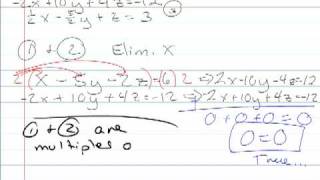 -2x+10y+4z=-12 ②
½x - 5/2y + z = 3
① & ② Elim. X
2(x - 5y - 2z)=(6)2 ⇒ 2x-10y-4z=12
-2x+10y+4z=-12 ⇒ -2x+10y+4z=-12
① & ② are
multiples o
0+0+0=0
0=0
True...